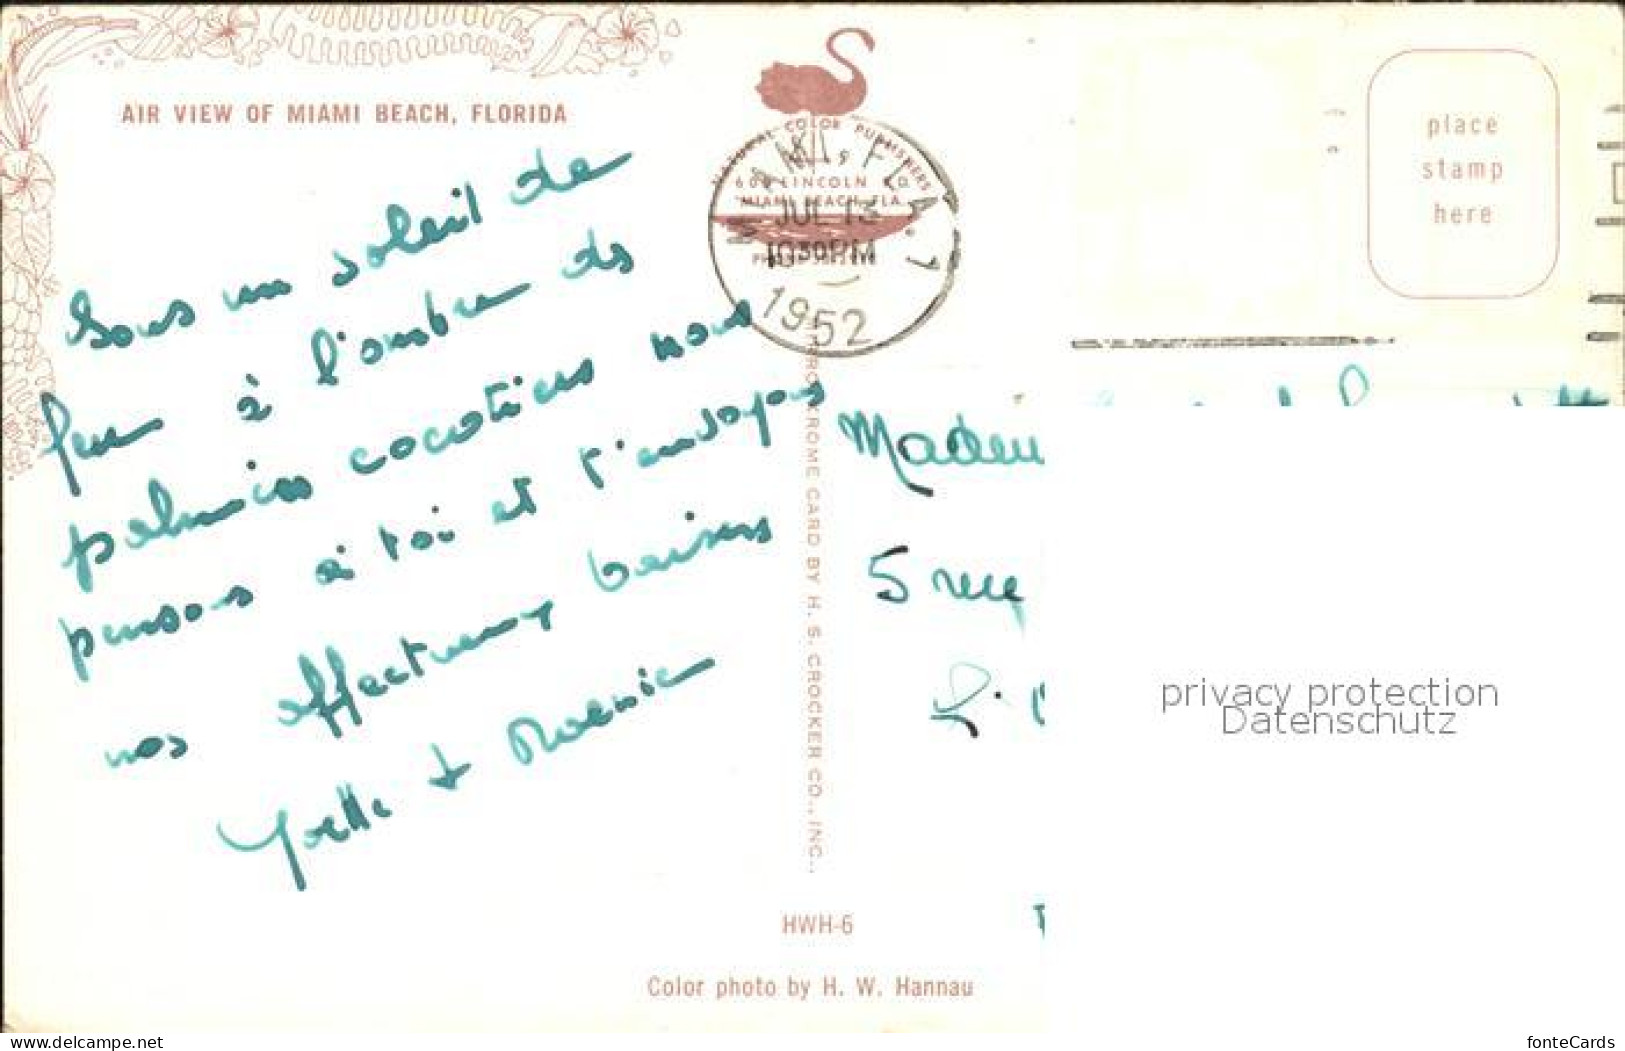 AIR VIEW OF MIAMI BEACH, FLORIDA
NATURAL COLOR PUBLISHERS
600 LINCOLN RD.
MIAMI BEACH, FLA.
MIAMI, FLA. 1
JUL 13
1030PM
1952
place
stamp
here
Sous un soleil de
feu à l'ombre des
palmiers cocotiers nous
pensons à toi et t'envoyons
nos affectueux baisers
Yvette &
5 rue
CARD BY H. S. CROCKER CO., INC.,
HWH-6
Color photo by H. W. Hannau
privacy protection
Datenschutz
www.delcampe.net
fonteCards